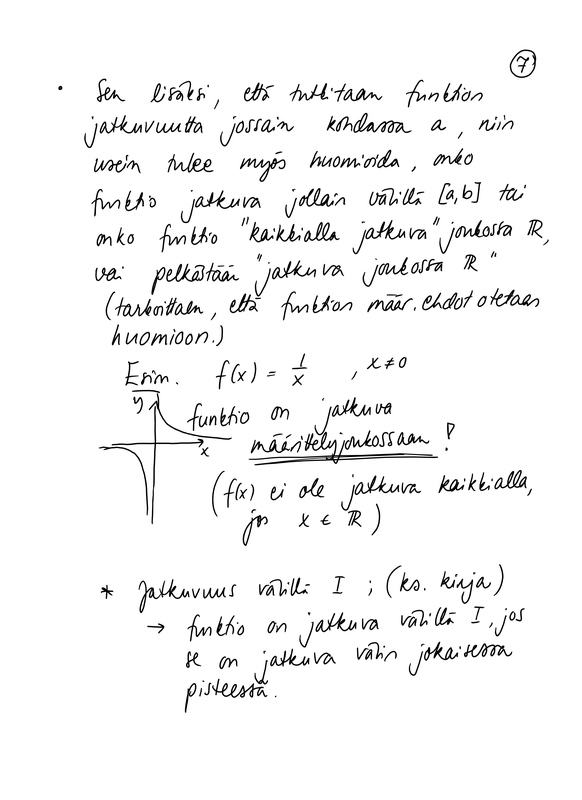 7
• Sen lisäksi, että tutkitaan funktion
jatkuvuutta jossain kohdassa a, niin
usein tulee myös huomioida, onko
funktio jatkuva jollain välillä [a,b] tai
onko funktio "kaikkialla jatkuva" joukossa ℝ,
vai pelkästään "jatkuva joukossa ℝ"
(tarkoittaen, että funktion määr.ehdot otetaan
huomioon.)
Esim. f(x) = 1/x , x≠0
y
funktio on jatkuva
määrittelyjoukossaan!
x
(f(x) ei ole jatkuva kaikkialla,
jos x ∈ ℝ)
* Jatkuvuus välillä I ; (ks. kirja)
→ funktio on jatkuva välillä I, jos
se on jatkuva välin jokaisessa
pisteessä.